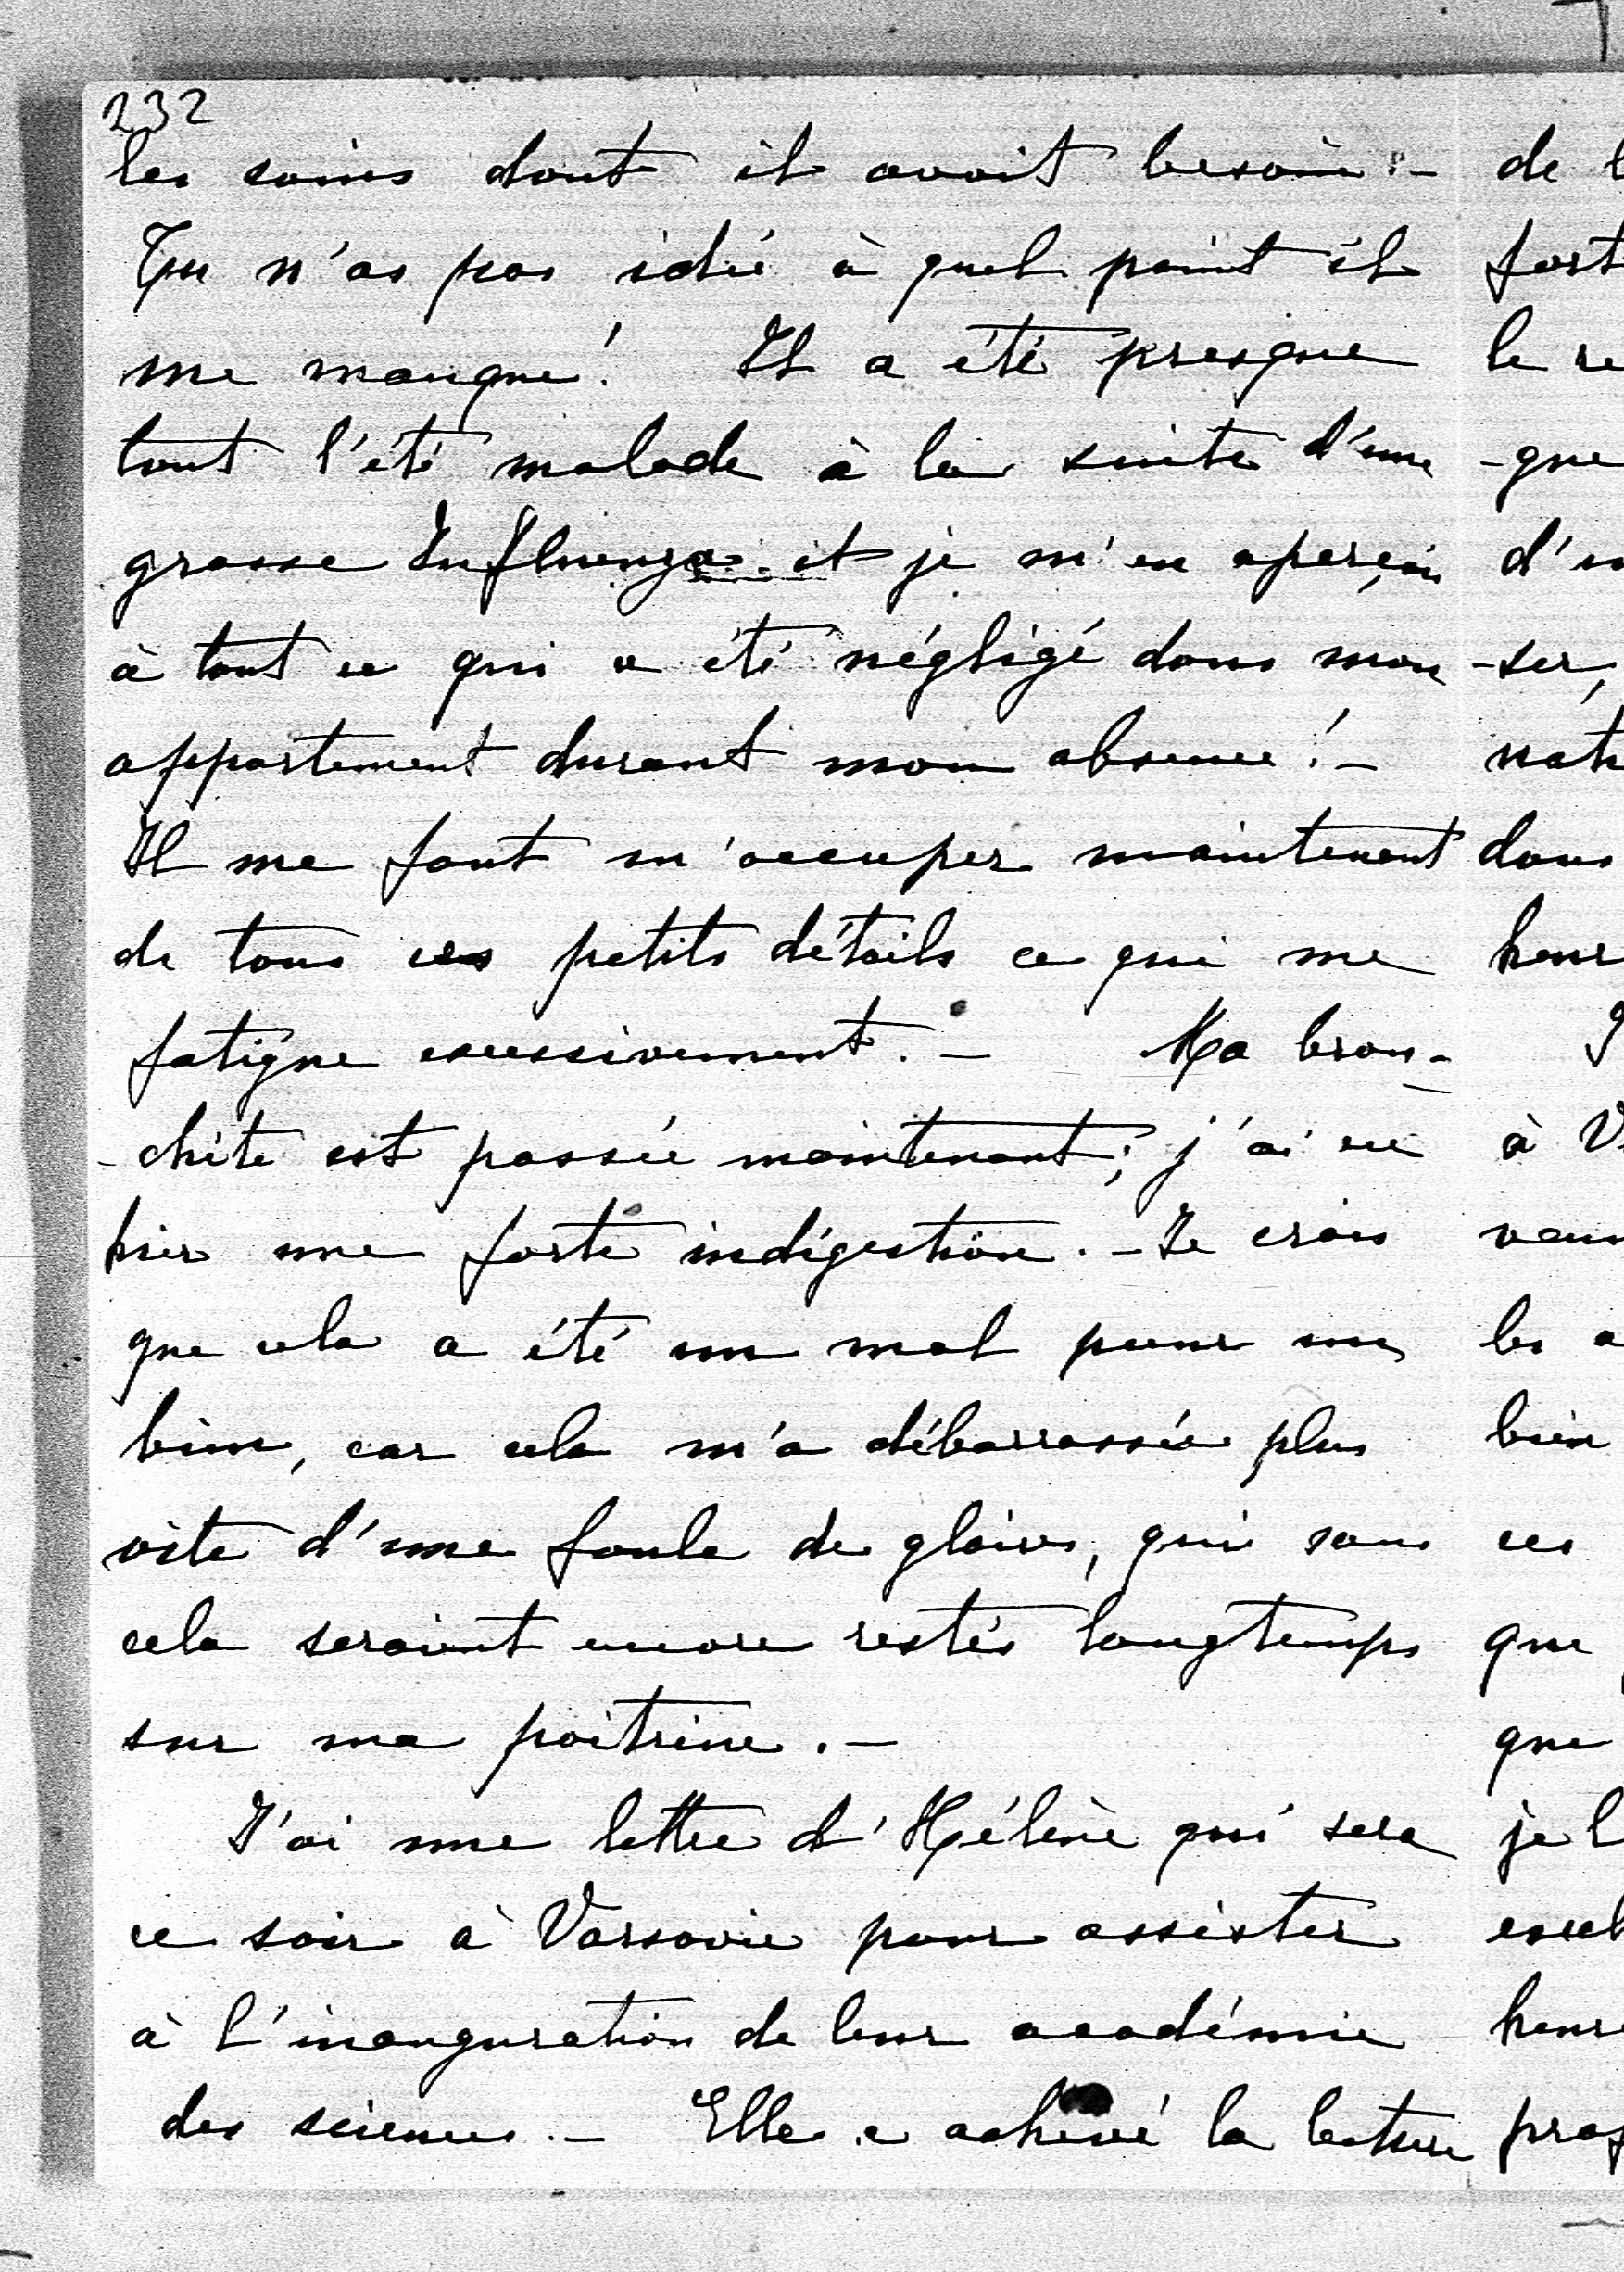 232
les soins dont il avait besoin.-
Tu n'as pas idée à quel point il
me manque! Il a été presque
tout l'été malade à la suite d'une
grosse Influenza et je m'en aperçoi
à tout ce qui a été négligé dans mon
appartement durant mon absence!-
Il me faut m'occuper maintenant
de tous ces petits détails ce qui me
fatigue excessivement.- Ma bron-
-chite est passée maintenant; j'ai eu
hier une forte indigestion.- Je crois
que cela a été un mal pour un
bien, car cela m'a débarrassée plus
vite d'une foule de glaires, qui sans
cela seraient encore restés longtemps
sur ma poitrine.-
J'ai une lettre d'Hélène qui sera
ce soir à Varsovie pour assister
à l'inauguration de leur académie
des sciences.- Elle a achevé la lecture
de l
fort
le re
-que
d'u
-ser,
nat
dans
heur
J
à V
venu
les a
bien
ces
que
que
je l
excel
heure
prop